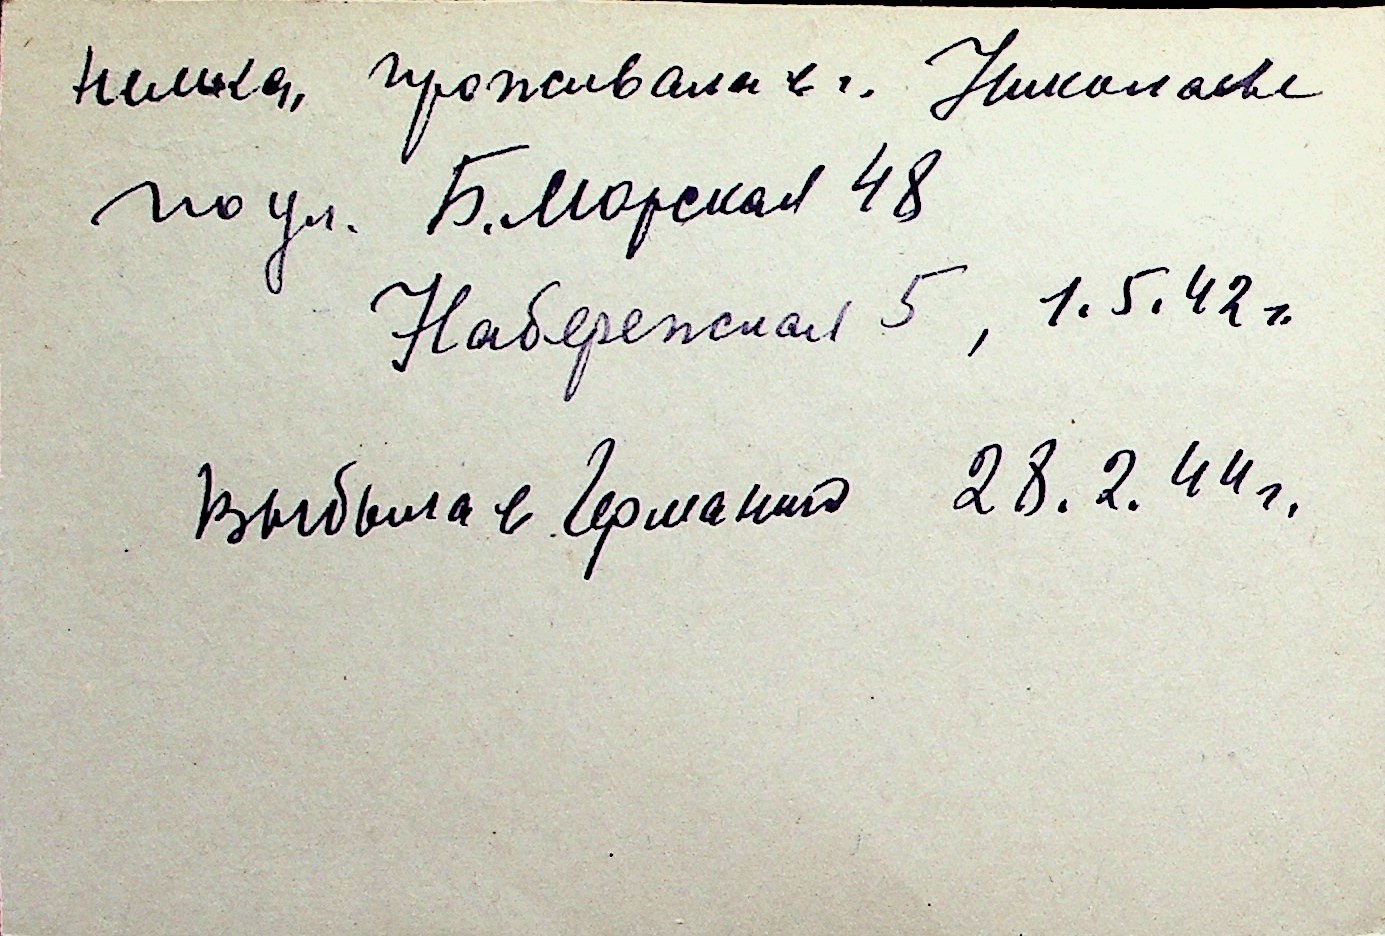 немка, проживала в г. Николаеве
по ул. Б. Морская 48
Набережная 5, 1.5.42 г.
Выбыла в Германию 28.2.44 г.